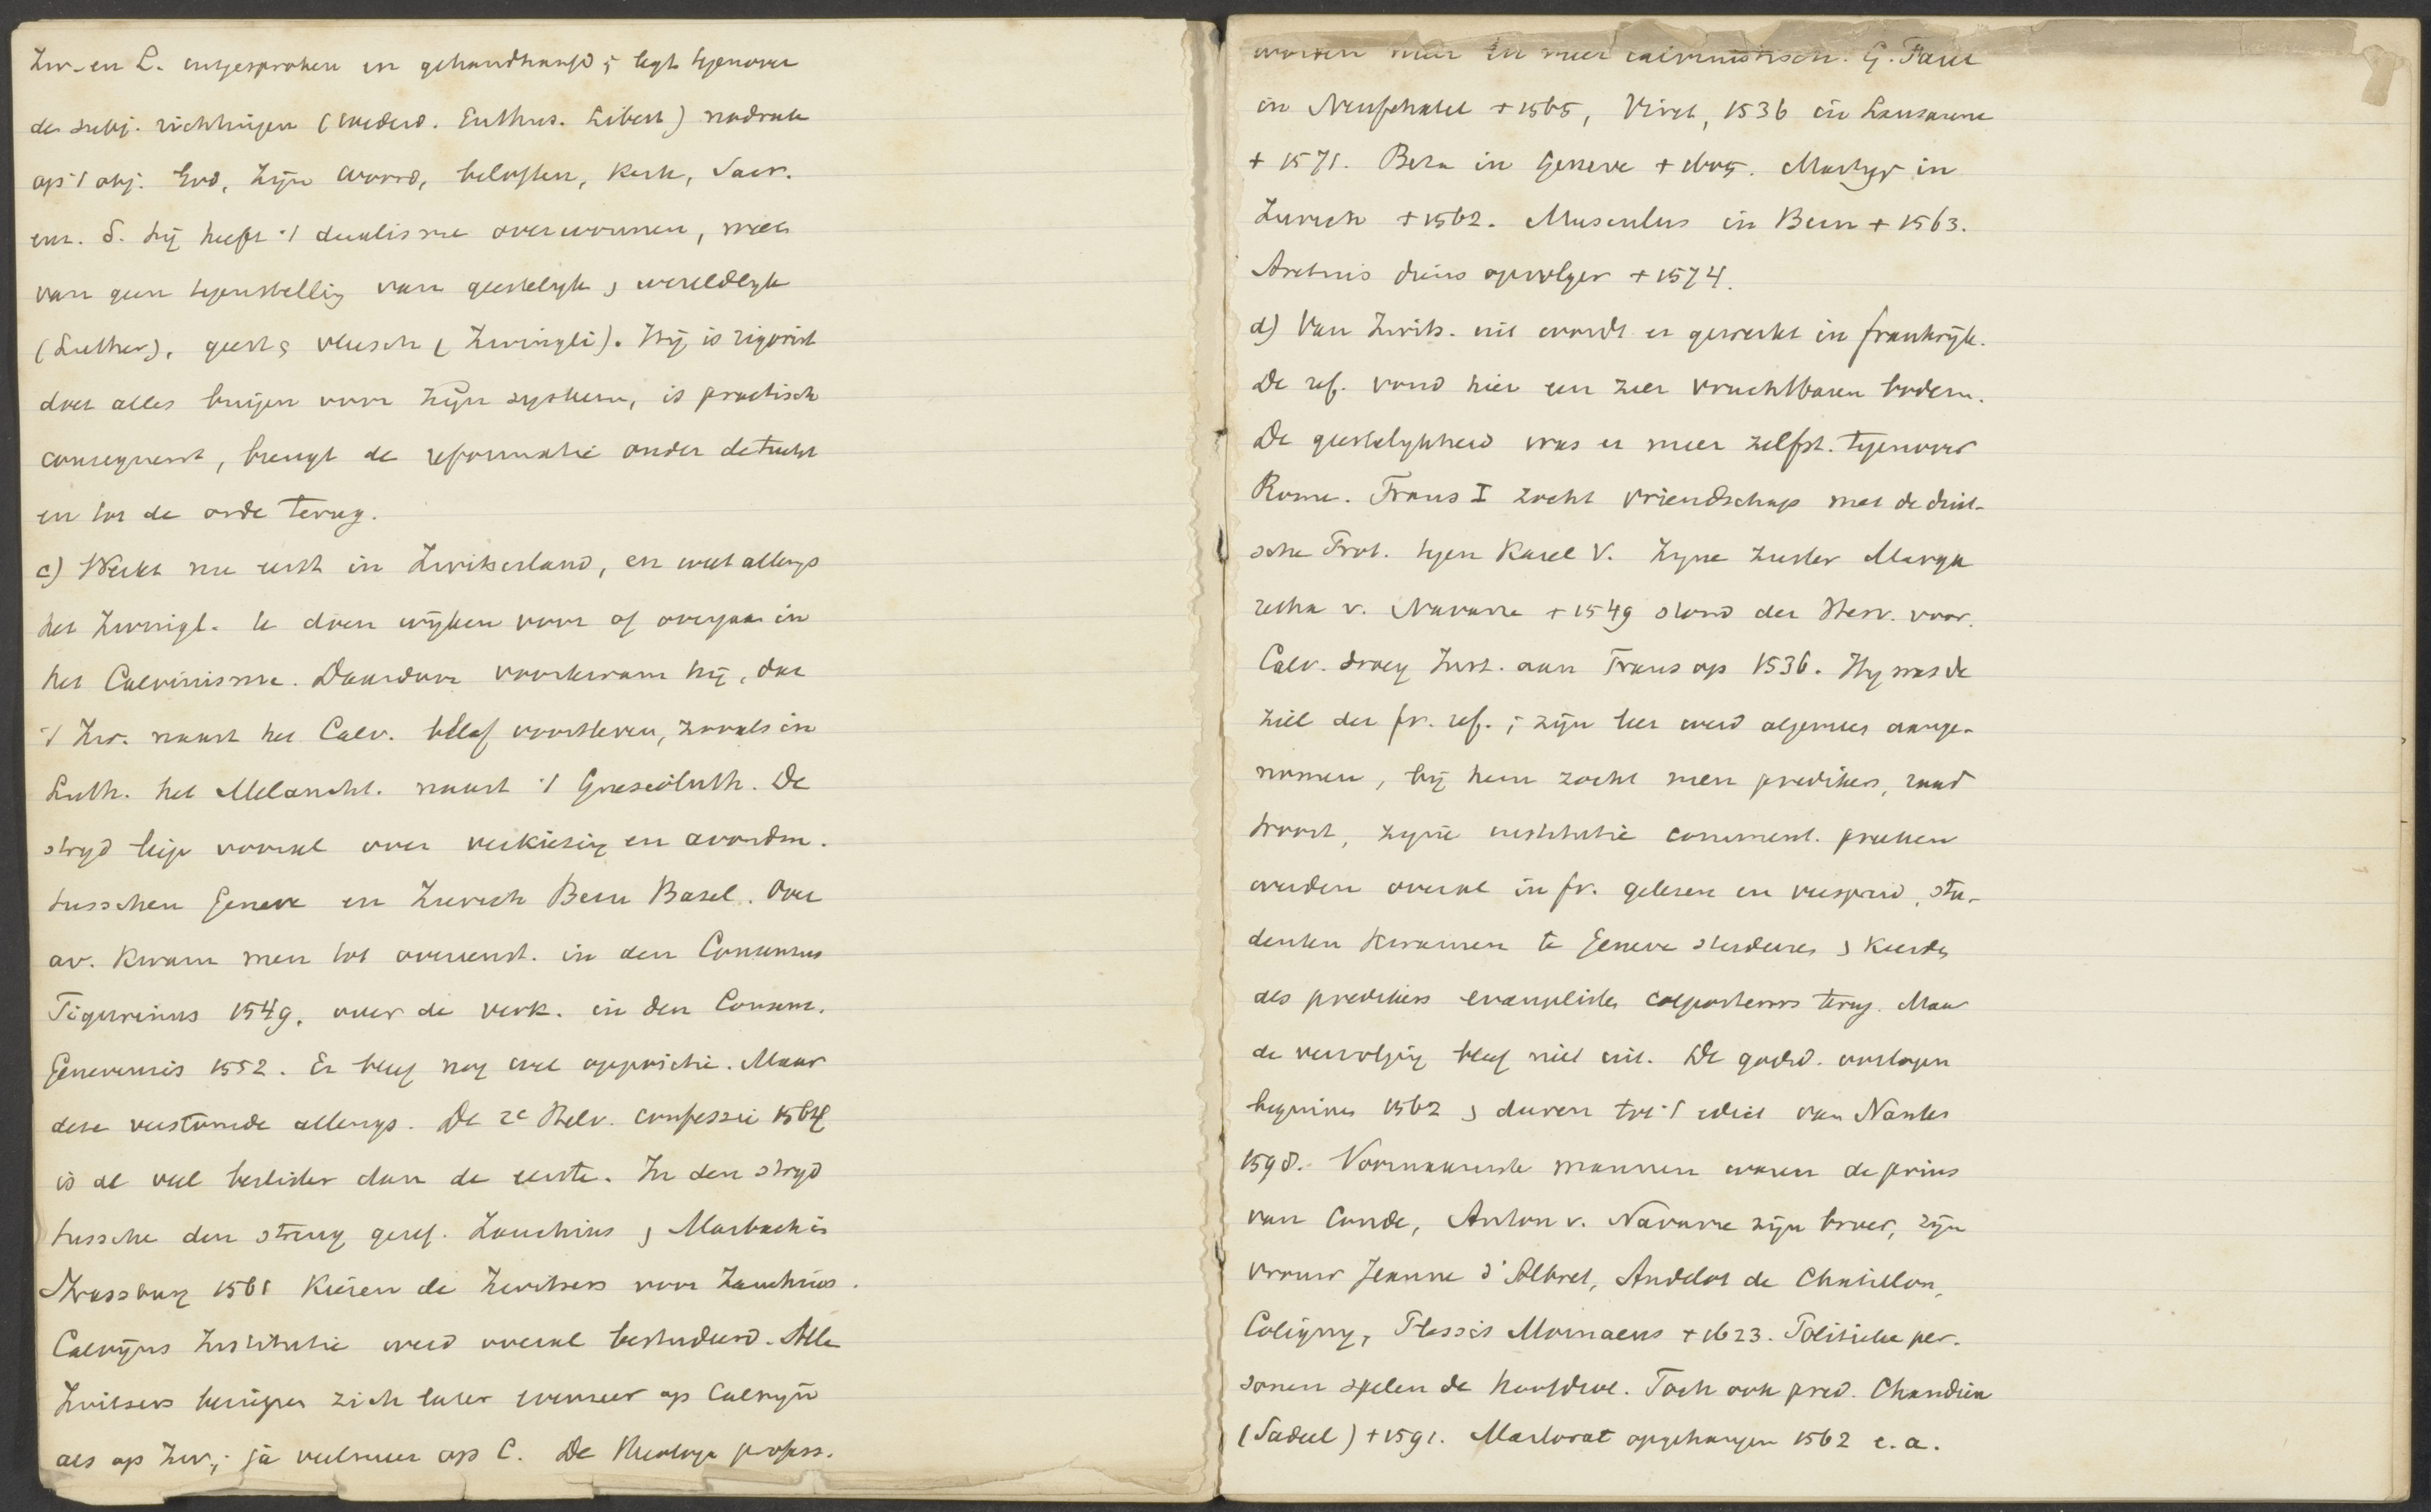 Zw. en L. uitgesproken en gehandhaafd; legt tegenover
de subj. richtingen (wederd. Enthus. Libert) nadruk
op 't obj. God, Zijn woord, beloften, Kerk, Sacr.
enz. δ. hij heeft 't dualisme overwonnen, weet
van geen tegenstelling van geestelyk & wereldlyk
(Luther), geest & vleesch (Zwingli). Hij is rigorist
doet alles buigen voor zijn systeem, is practisch
consequent, brengt de reformatie onder de tucht
en tot de orde terug.
c) Werkt nu eerst in Zwitserland, en weet allengs
het Zwingl. te doen wijken voor of overgaan in
het Calvinisme. Daardoor voorkwam hij, dat
't Zw. naast het Calv. bleef voortleven, zooals in
Luth. het Melancht. naast 't Gnesioluth. De
stryd liep vooral over verkiezing en avondm.
tusschen Geneve en Zurich Bern Basel. Over
av. kwam men tot overeenst. in den Consensus
Tigurinus 1549, over de verk. in den Consens.
Genevensis 1552. Er bleef nog wel oppositie. Maar
deze verstomde allengs. De 2e Helv. confessie 1564
is al veel beslister dan de eerste. In den stryd
tussche den streng geref. Zanchius & Marbach in
Strassburg 1561 kiezen de Zwitsers voor Zanchius.
Calvijns Institutie werd overal bestudeerd. Alle
Zwitsers beriepen zich later evenzeer op Calvyn
als op Zw.; ja veelmeer op C. De Theologe profess.
worden meer en meer calvinistisch. G. Farel
in Neufchatel + 1565, Viret, 1536 in Lausanne
+ 1571. Beza in Geneve + 1605. Martyr in
Zurich + 1562. Musculus in Bern + 1563.
Aretius diens opvolger + 1574.
d) Van Zwits. uit wordt er gewerkt in frankrijk.
De ref. vond hier een zeer vruchtbaren bodem.
De geestelykheid was er meer zelfst. tegenover
Rome. Frans I zocht vriendschap met de duit-
sche Prot. tegen Karel V. Zyne zuster Marga
retha v. Navarre + 1549 stond der Herv. voor.
Calv. droeg Inst. aan Frans op 1536. Hy was de
ziel der fr. ref.; zijn leer werd algemeen aange-
nomen, bij hem zocht men predikers, raad
troost, zyne institutie comment. preeken
werden overal in fr. gelezen en verspreid, stu-
denten kwamen te Geneve studeeren & keerden
als predikers evangelisten colporteurs terug. Maar
de vervolging bleef niet uit. De godsd. oorlogen
beginnen 1562 & duren tot 't edict van Nantes
1598. Voornaamste mannen waren de prins
van Conde, Anton v. Navarre zijn broer, zijn
vrouw Jeanne d'Albret, Andelot de Chatillon,
Coligny, Plessis Mornaeus + 1623. Politieke per-
sonen spelen de hoofdrol. Toch ook pred. Chandieu
(Sadeel) + 1591. Marlorat opgehangen 1562 e.a.